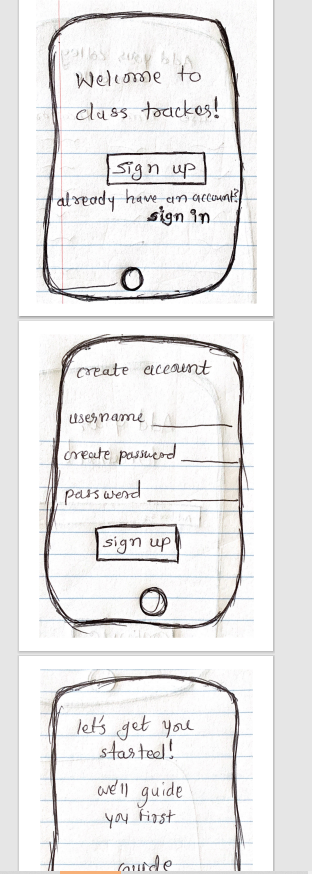 Welcome to
class tracker!
Sign up
already have an account?
sign in
create account
username
create password
password
sign up
let's get you
started!
we'll guide
you first
Guide